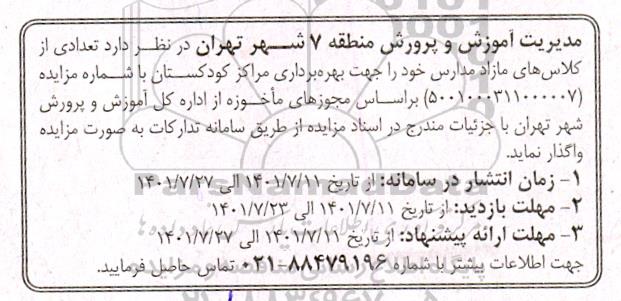 مدیریت آموزش و پرورش منطقه ۷ شهر تهران در نظر دارد تعدادی از
کلاس‌های مازاد مدارس خود را جهت بهره‌برداری مراکز کودکستان با شماره مزایده
(۵۰۰۱۰۰۰۳۱۱۰۰۰۰۰۷) براساس مجوزهای مأخوزه از اداره کل آموزش و پرورش
شهر تهران با جزئیات مندرج در اسناد مزایده از طریق سامانه تدارکات به صورت مزایده
واگذار نماید.
۱- زمان انتشار در سامانه: از تاریخ ۱۴۰۱/۷/۱۱ الی ۱۴۰۱/۷/۲۷
۲- مهلت بازدید: از تاریخ ۱۴۰۱/۷/۱۱ الی ۱۴۰۱/۷/۲۳
۳- مهلت ارائه پیشنهاد: از تاریخ ۱۴۰۱/۷/۱۱ الی ۱۴۰۱/۷/۲۷
جهت اطلاعات بیشتر با شماره ۸۸۴۷۹۱۹۶-۰۲۱ تماس حاصل فرمایید.